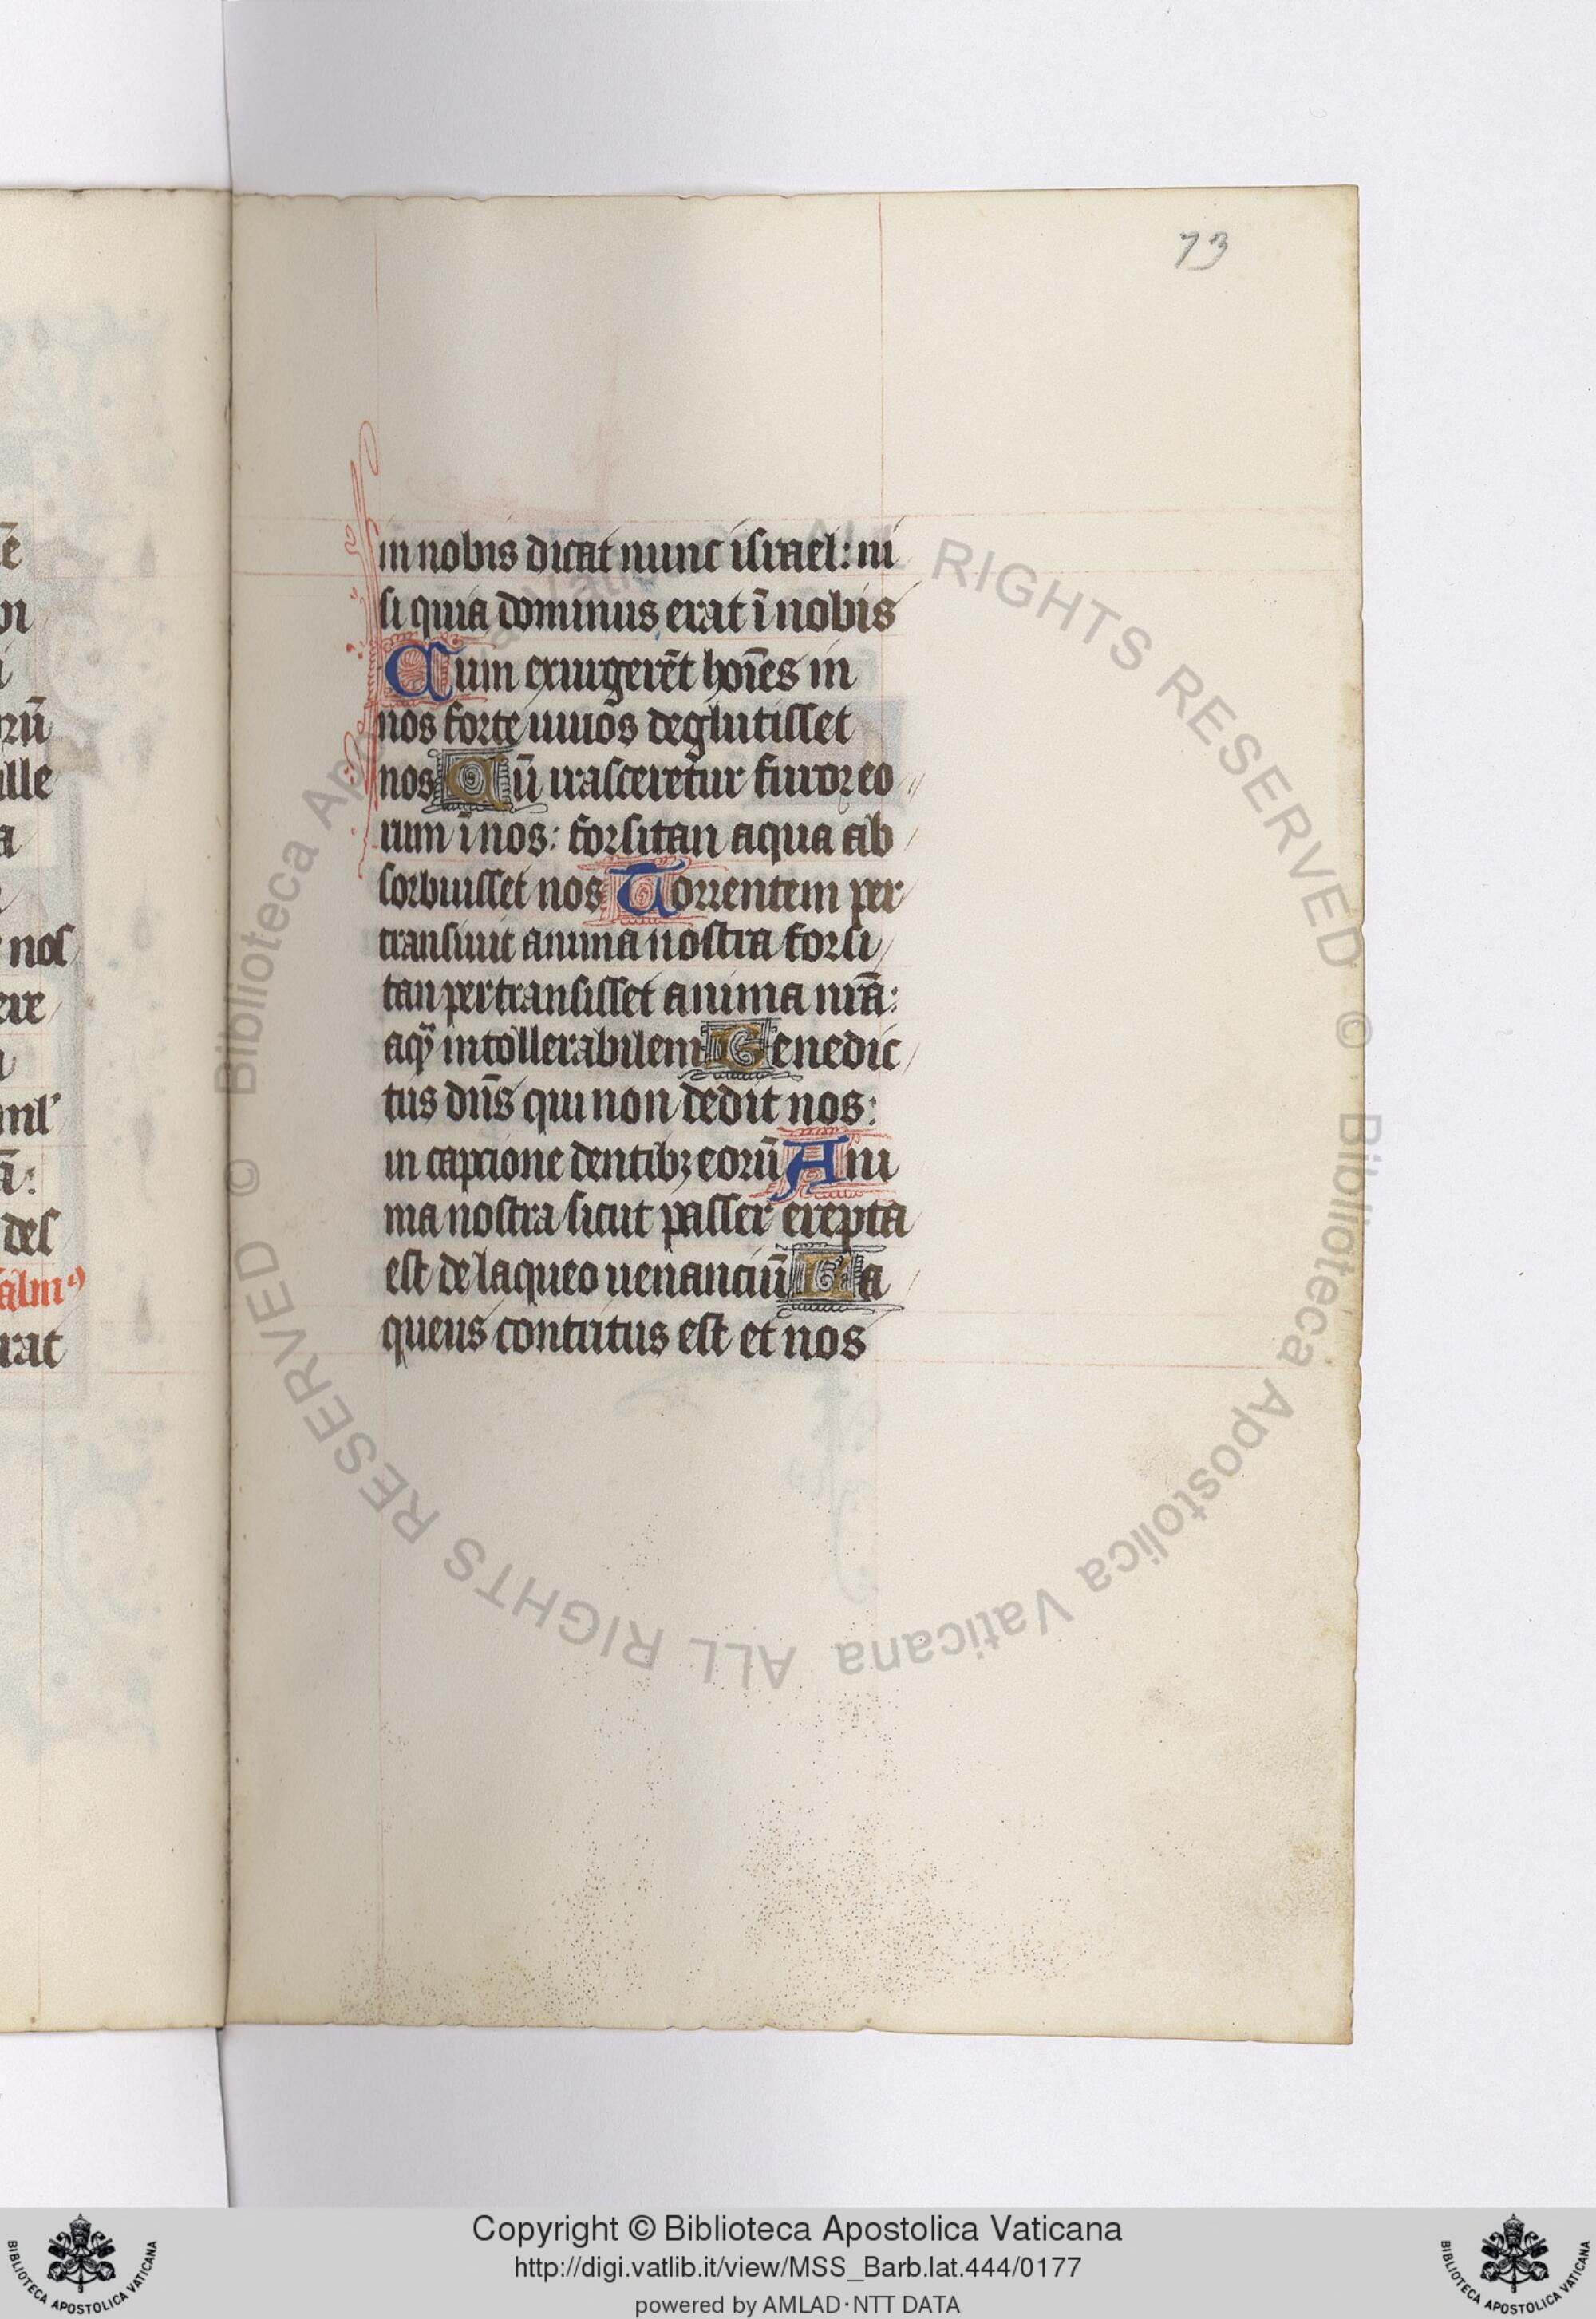 73
in nobis dicat nunc israel: ni
si quia dominus erat ī nobis
Cum exurgerēt hoīes in
nos forte uiuos deglutisset
nos Cū irasceretur furor eo
rum ī nos: forsitan aqua ab
sorbuisset nos Torrentem per
transiuit anima nostra forsi
tan pertransisset anima nrā:
aqͣ intollerabilem Benedic
tus dn̄s qui non dedit nos:
in capcione dentibꝫ eorū Ani
ma nostra sicut passer erepta
est de laqueo uenanciū La
queus contritus est et nos
nos
ere
des
rat
Copyright © Biblioteca Apostolica Vaticana
http://digi.vatlib.it/view/MSS_Barb.lat.444/0177
powered by AMLAD·NTT DATA
BIBLIOTECA APOSTOLICA VATICANA
BIBLIOTECA APOSTOLICA VATICANA
© Biblioteca Apostolica Vaticana ALL RIGHTS RESERVED
© Biblioteca Apostolica Vaticana ALL RIGHTS RESERVED